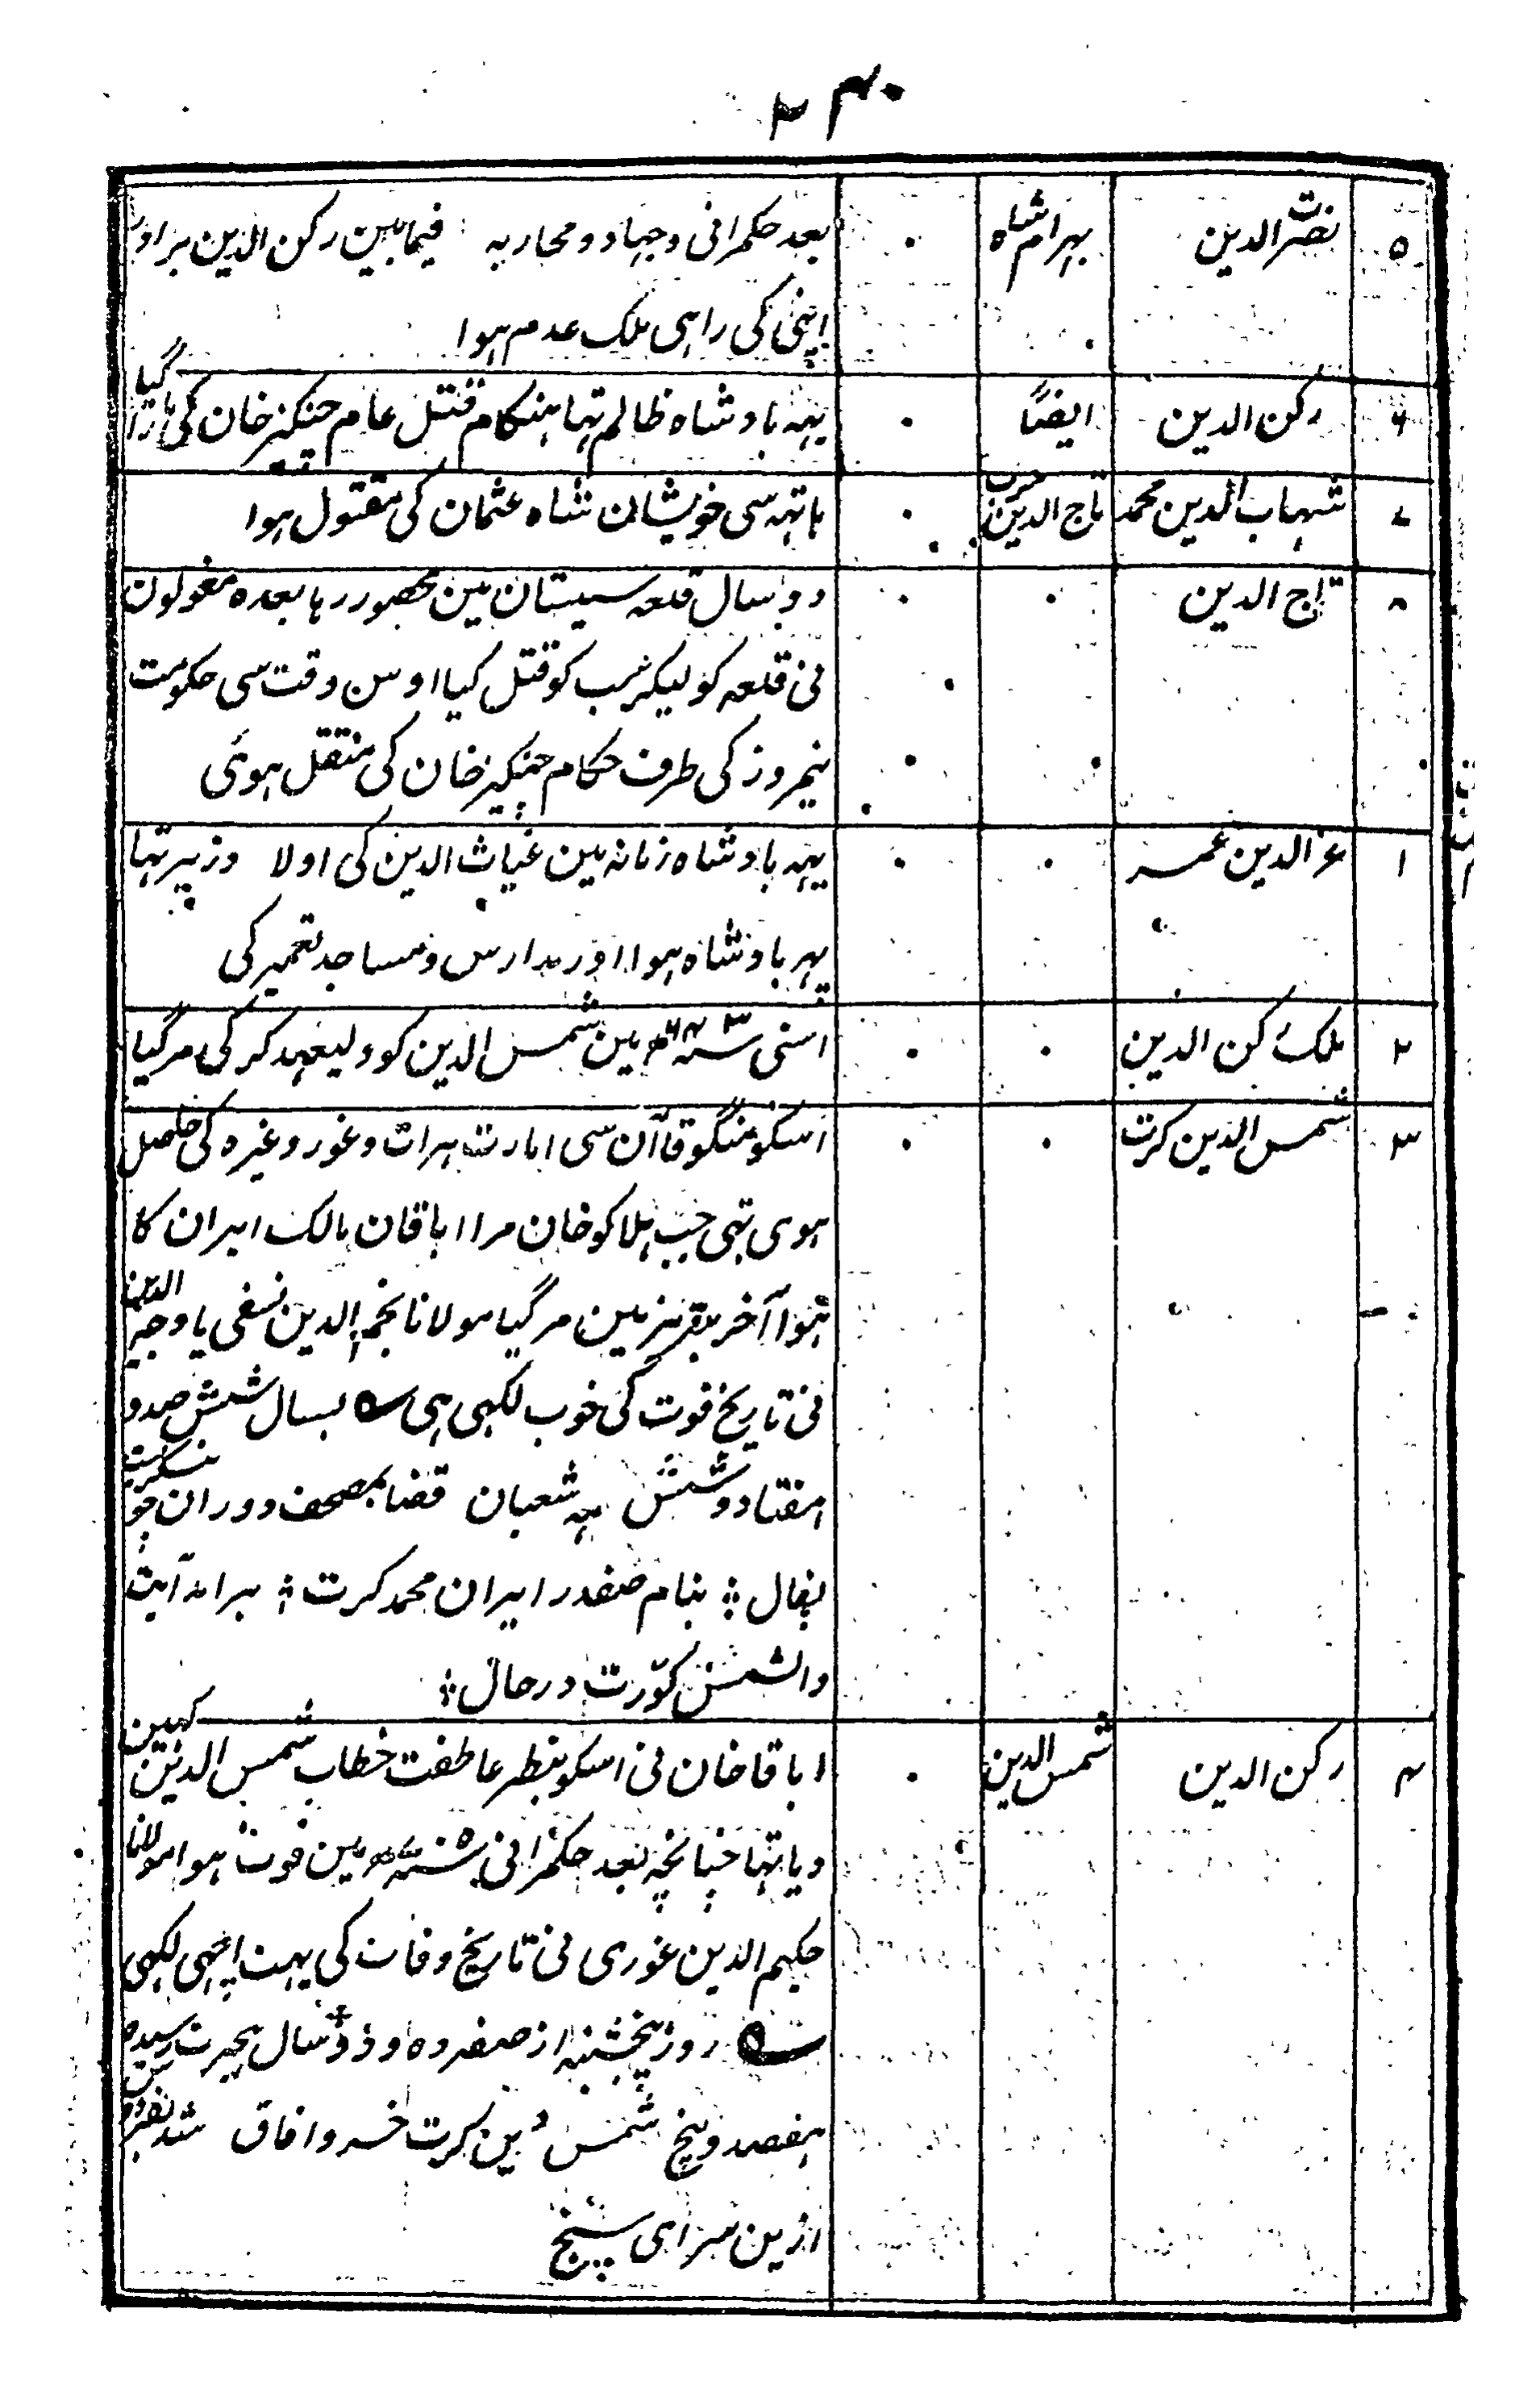 ۲۴۰
۵ نصرت الدین بہرام شاہ ۰ بعد حکمرانی و جہاد و محاربہ فیمابین رکن الدین برادر
اپنی کی راہی ملک عدم ہوا
۶ رکن الدین ایضًا ۰ یہہ بادشاہ ظالم تہا ہنکام قتل عام چنکیز خان کی مارا گیا
۷ شہاب الدین محمد تاج الدین حرب ۰ ہاتہہ سی خویشان شاہ عثمان کی مقتول ہوا
۸ تاج الدین ۰ ۰ دو سال قلعہ سیستان مین محصور رہا بعدہ مغولون
نی قلعہ کو لیکر سب کو قتل کیا اوس وقت سی حکومت
نیمروز کی طرف حکام چنکیز خان کی منتقل ہوئی
۱ عز الدین عمر ۰ ۰ یہہ بادشاہ زمانہ مین غیاث الدین کی اولا وزیر تہا
پہر بادشاہ ہوا اور مدارس و مساجد تعمیر کی
۲ ملک رکن الدین ۰ ۰ اسنی سنہ ۶۴۳ھ مین شمس الدین کو ولیعہد کر کی مر گیا
۳ شمس الدین کرت ۰ ۰ اسکو منگو قاآن سی امارت ہرات و غور و غیرہ کی حاصل
ہوی تہی جب ہلاکو خان مرا اباقان مالک ایران کا
ہوا آخر بتبریز مین مر گیا مولانا نجم الدین نسفی یا وجیہ الدین
نی تاریخ فوت کی خوب لکہی ہی ؎ بسال ششصد و
ہفتاد و شش مہ شعبان قضا بمصحف دوران چو بنکریست
بفال ؞ بنام صفدر ایران محمد کرت ؞ برامد آیت
والشمس کوّرت در حال ؞
۴ رکن الدین شمس الدین ۰ اباقا خان نی اسکو بنظر عاطفت خطاب شمس الدین کہین
دیا تہا چنانچہ بعد حکمرانی سنہ مین فوت ہوا مولانا
حکیم الدین غوری نی تاریخ وفات کی بہت اچہی لکہی
؎ روز پنجشنبہ از صفر ده و دو سال ہجرت رسیدہ
ہفصد و پنج شمس دین کرت خسرو افاق شد
ازین سرای سپنج